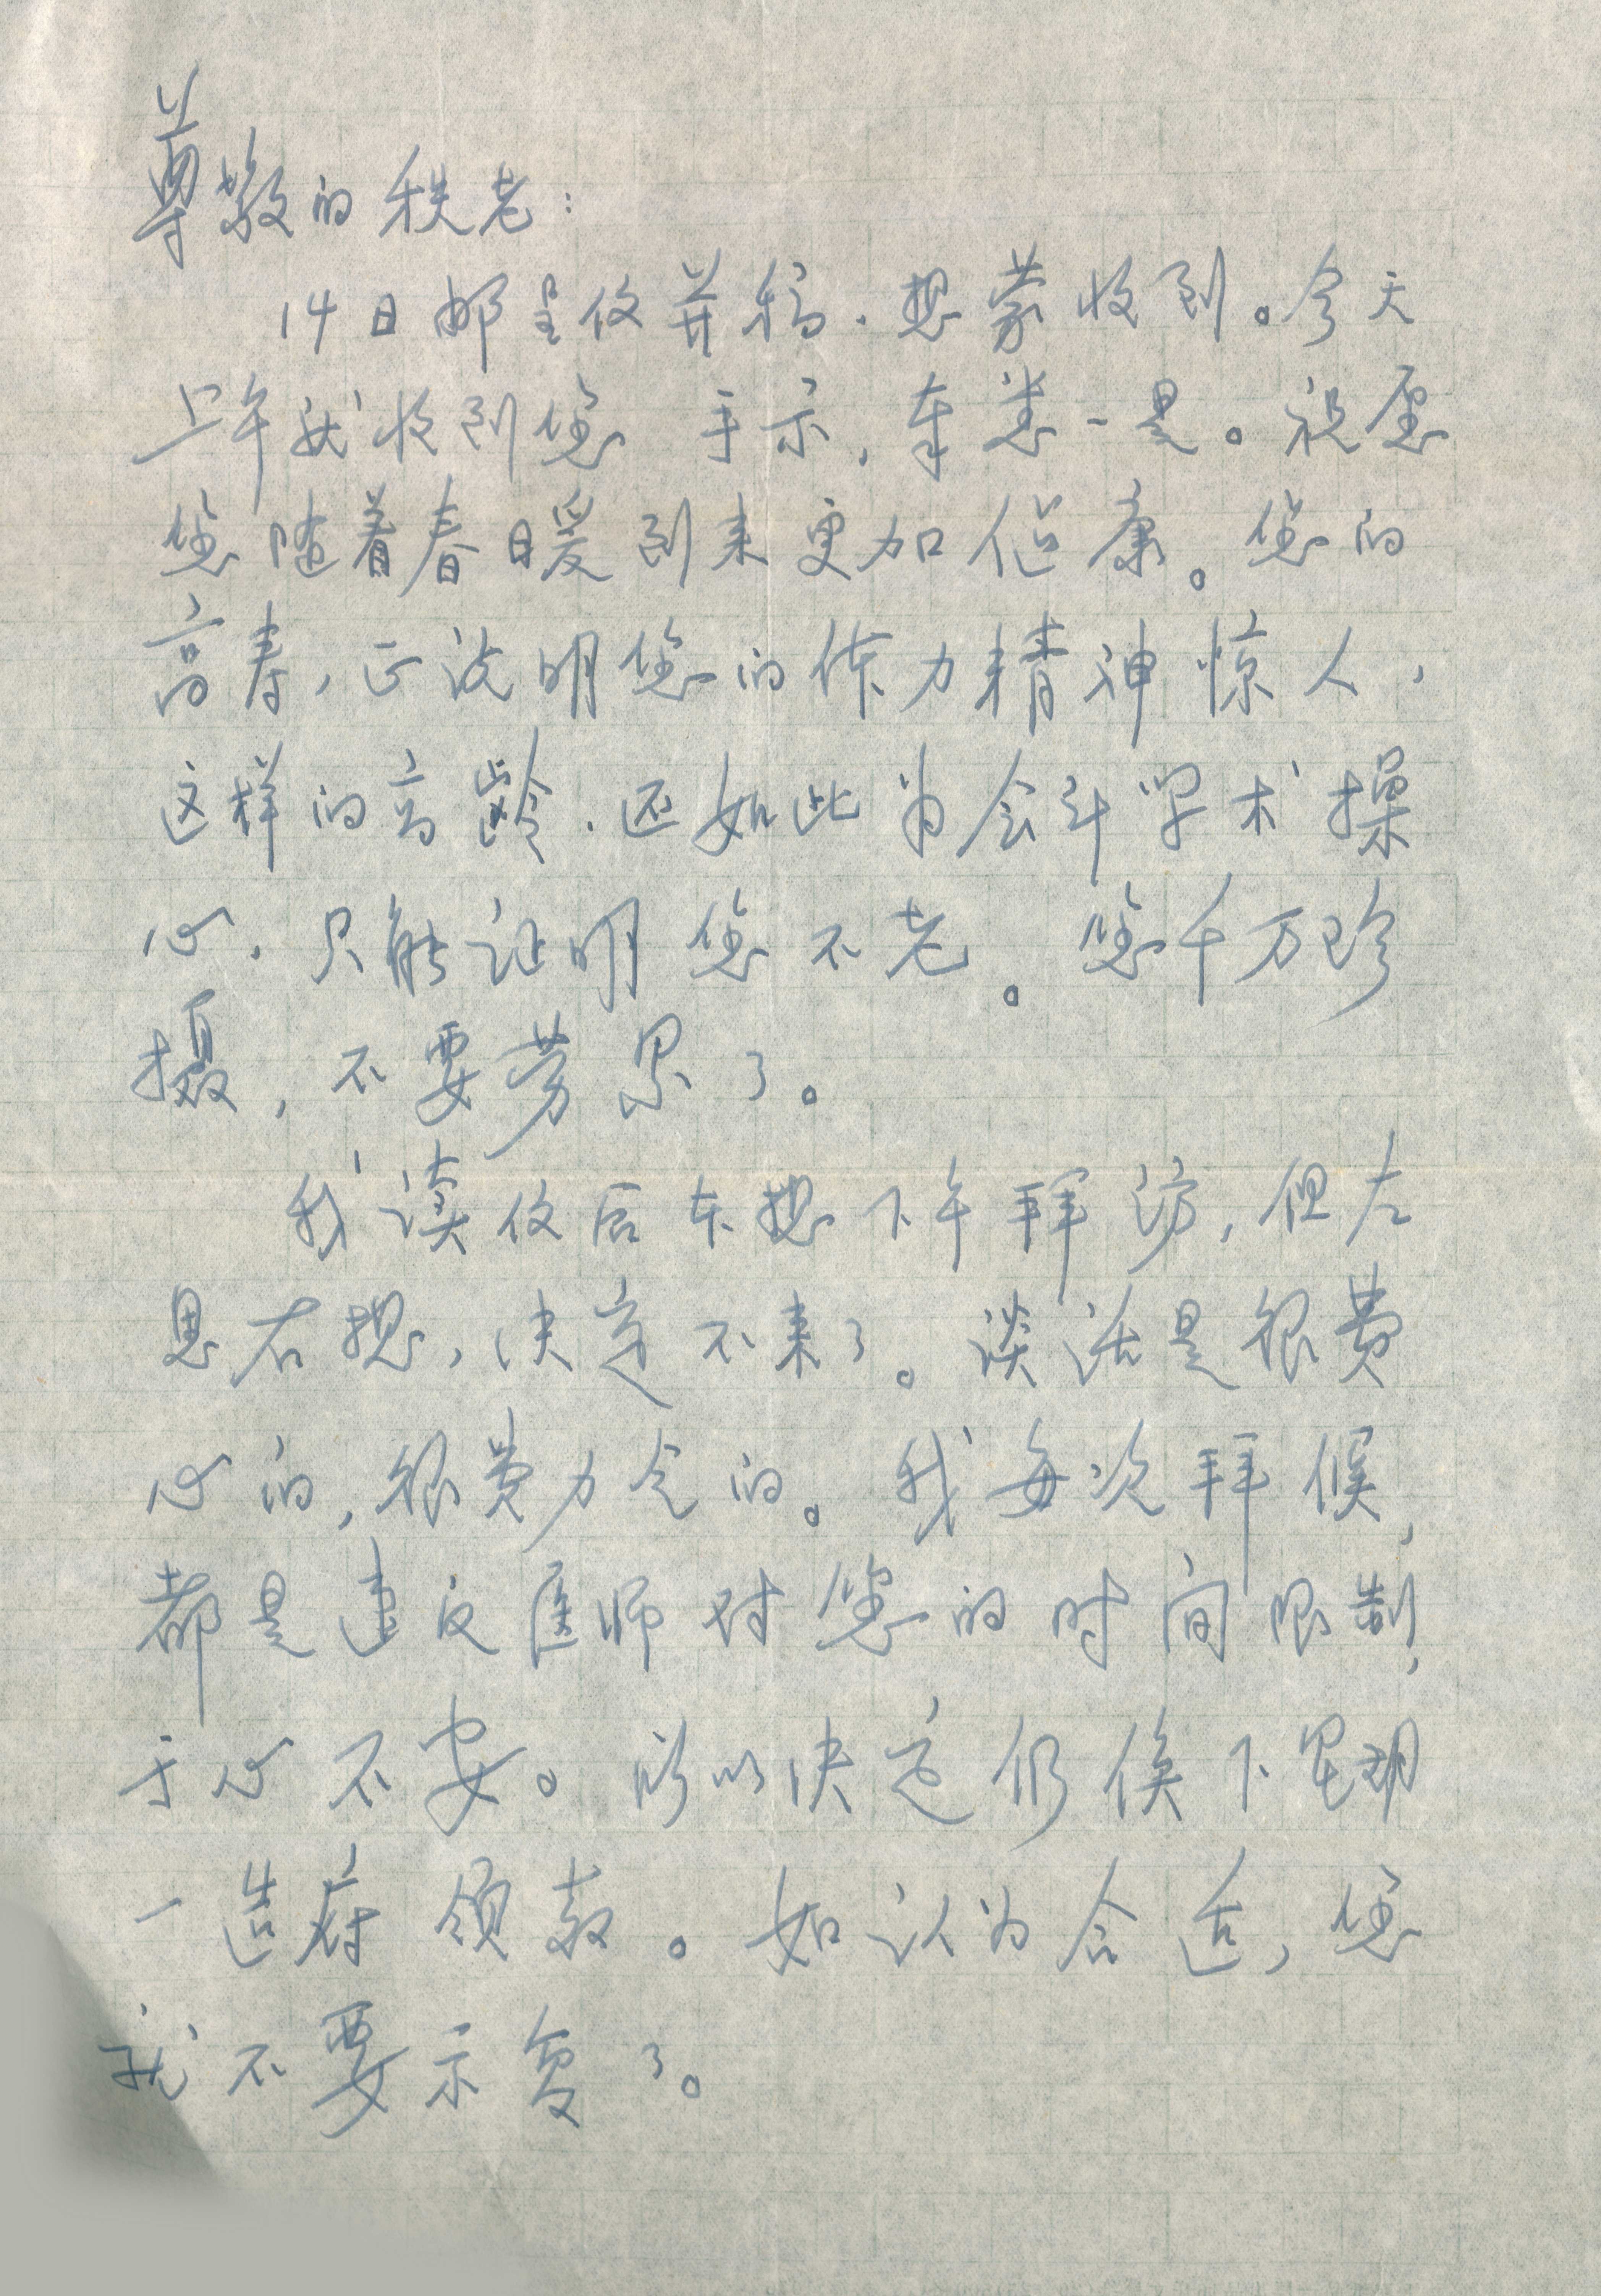 尊敬的秩老：
14日邮呈信并稿，想蒙收到。今天
上午就收到您 手示，奉悉一是。祝愿
您随着春日暖到来更加健康。您的
高寿，正说明您的体力精神惊人，
这样的高龄，还如此为会计学术操
心，只能证明您不老。您千万珍
摄，不要劳累了。
我读信后本想下午拜访，但左
思右想，决定不来了。谈话是很费
心的，很费力气的。我每次拜候，
都是违反医师对您的时间限制，
于心不安。所以决定仍俟下星期
一造府领教。如认为合适，您
就不要示复了。